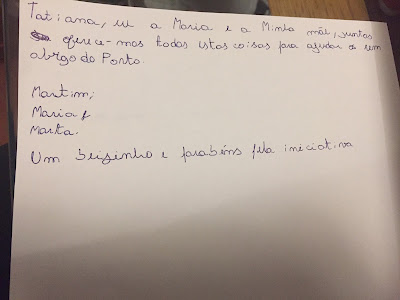 Tatiana, eu a Maria e a Minha mãe, juntas
oferece-mos todas estas coisas para ajudar os sem
abrigo do Porto.
Martim;
Maria f
Marta.
Um beijinho e parabéns pela iniciativa